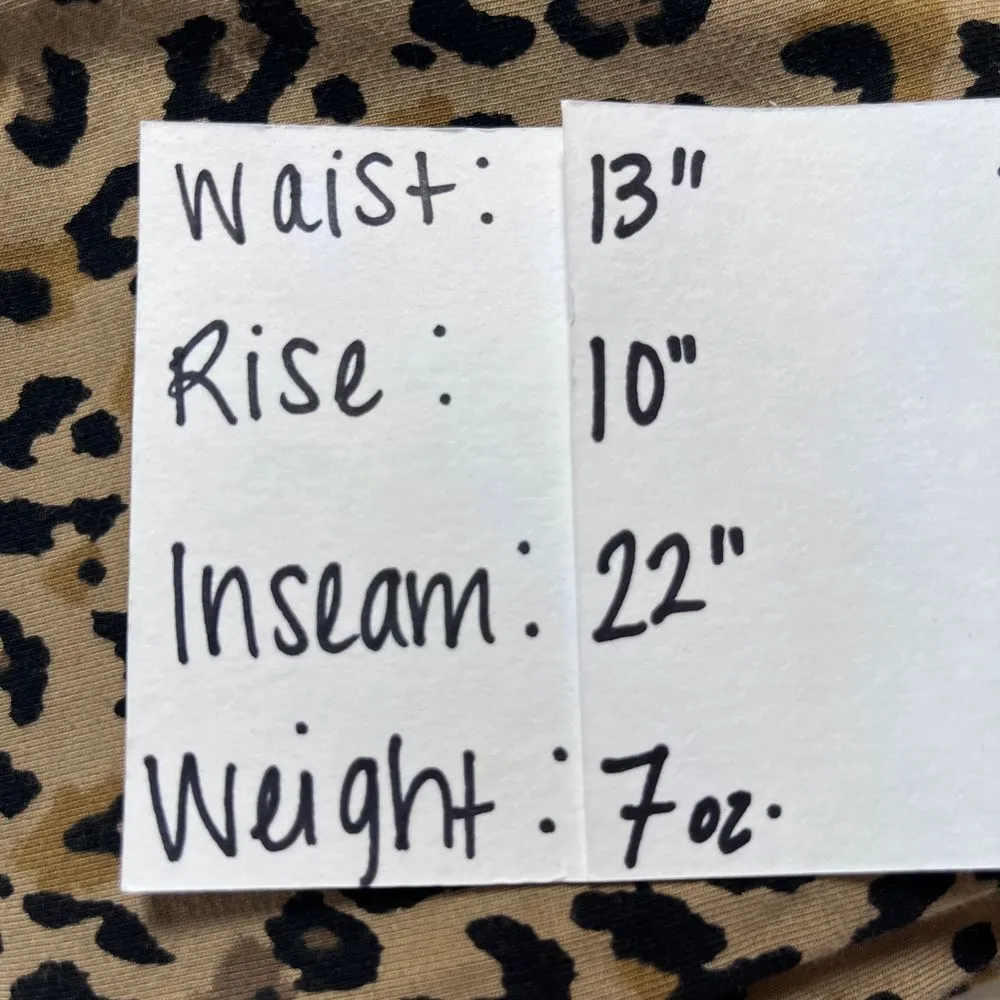 Waist: 13"
Rise: 10"
Inseam: 22"
Weight: 7 oz.